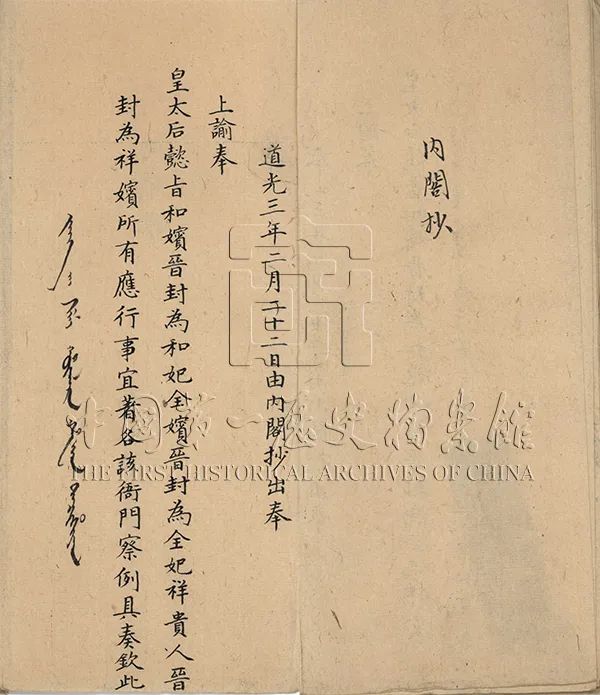 內閣抄
道光三年二月二十二日由內閣抄出奉
上諭奉
皇太后懿旨和嬪晉封為和妃全嬪晉封為全妃祥貴人晉
封為祥嬪所有應行事宜著各該衙門察例具奏欽此
中國第一歷史檔案館
THE FIRST HISTORICAL ARCHIVES OF CHINA